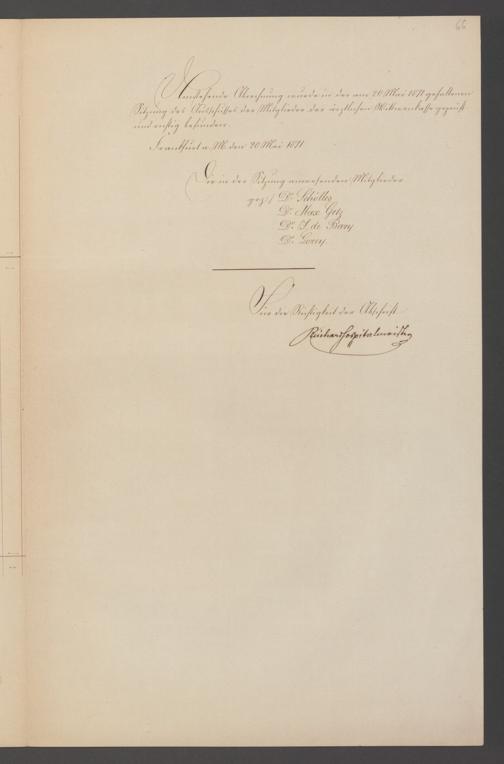 66
Umstehende Abrechnung wurde in der am 20 Mai 1871 gehaltenen
Sitzung des Ausschusses der Mitglieder der ärztlichen Wittwenkasse geprüft
und richtig befunden.
Frankfurt a/M. den 20 Mai 1871
Die in der Sitzung anwesenden Mitglieder
gez. Dr. Schölles
Dr. Max Getz
Dr. J. de Bary
Dr. Lorey
Für die Richtigkeit der Abschrift
Hospitalmeister